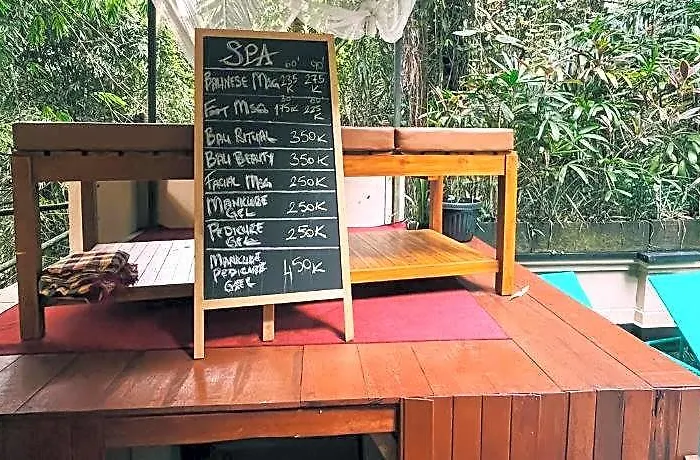 SPA
60' 90'
BALINESE MSG 235K 275K
FOOT MSG 175K
BALI RITUAL 350K
BALI BEAUTY 350K
FACIAL MSG 250K
MANICURE GEL 250K
PEDICURE GEL 250K
MANICURE
PEDICURE 450K
GEL